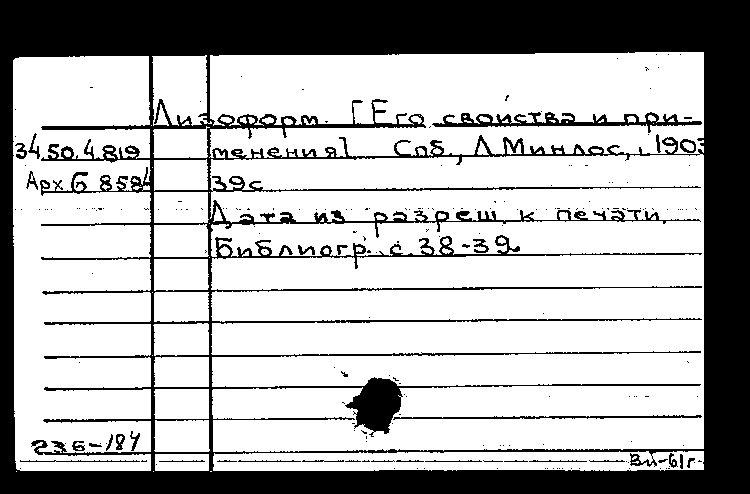 Лизоформ. [Его свойства и при-
34.50.4.819 менения] Спб., Л. Минлос, [1903
Арх Б 8584 39с
Дата из разреш. к печати.
Библиогр. с. 38-39
236-184
Вй-61г